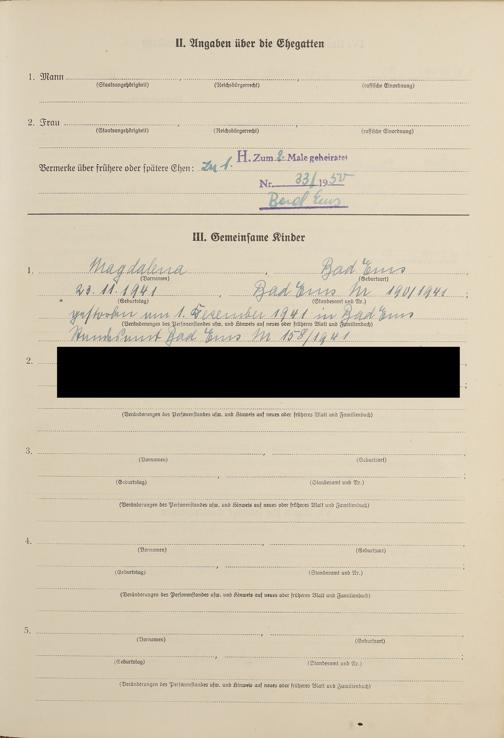 II. Angaben über die Ehegatten
1. Mann
(Staatsangehörigkeit) (Reichsbürgerrecht) (rassische Einordnung)
2. Frau
(Staatsangehörigkeit) (Reichsbürgerrecht) (rassische Einordnung)
Vermerke über frühere oder spätere Ehen: zu 1. H. Zum 2. Male geheiratet
Nr. 33/1950
Bad Ems
III. Gemeinsame Kinder
1. Magdalena, Bad Ems
(Vornamen) (Geburtsort)
23.11.1941, Bad Ems Nr 190/1941
(Geburtstag) (Standesamt und Nr.)
gestorben am 1. Dezember 1941 in Bad Ems
(Veränderungen des Personenstandes usw. und Hinweis auf neues oder früheres Blatt und Familienbuch)
Standesamt Bad Ems Nr 158/1941
2.
(Veränderungen des Personenstandes usw. und Hinweis auf neues oder früheres Blatt und Familienbuch)
3.
(Vornamen) (Geburtsort)
(Geburtstag) (Standesamt und Nr.)
(Veränderungen des Personenstandes usw. und Hinweis auf neues oder früheres Blatt und Familienbuch)
4.
(Vornamen) (Geburtsort)
(Geburtstag) (Standesamt und Nr.)
(Veränderungen des Personenstandes usw. und Hinweis auf neues oder früheres Blatt und Familienbuch)
5.
(Vornamen) (Geburtsort)
(Geburtstag) (Standesamt und Nr.)
(Veränderungen des Personenstandes usw. und Hinweis auf neues oder früheres Blatt und Familienbuch)